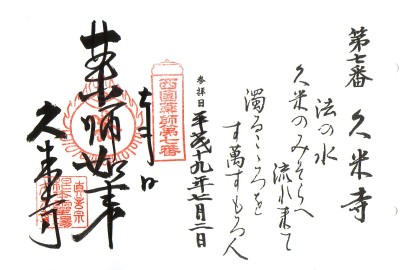 第七番 久米寺
法の水
久米のみそらへ
流れ来て
濁るこゝろを
すます もろ人
参拝日 平成十九年七月二日
西国薬師第七番
薬師如来
久米寺
真言宗